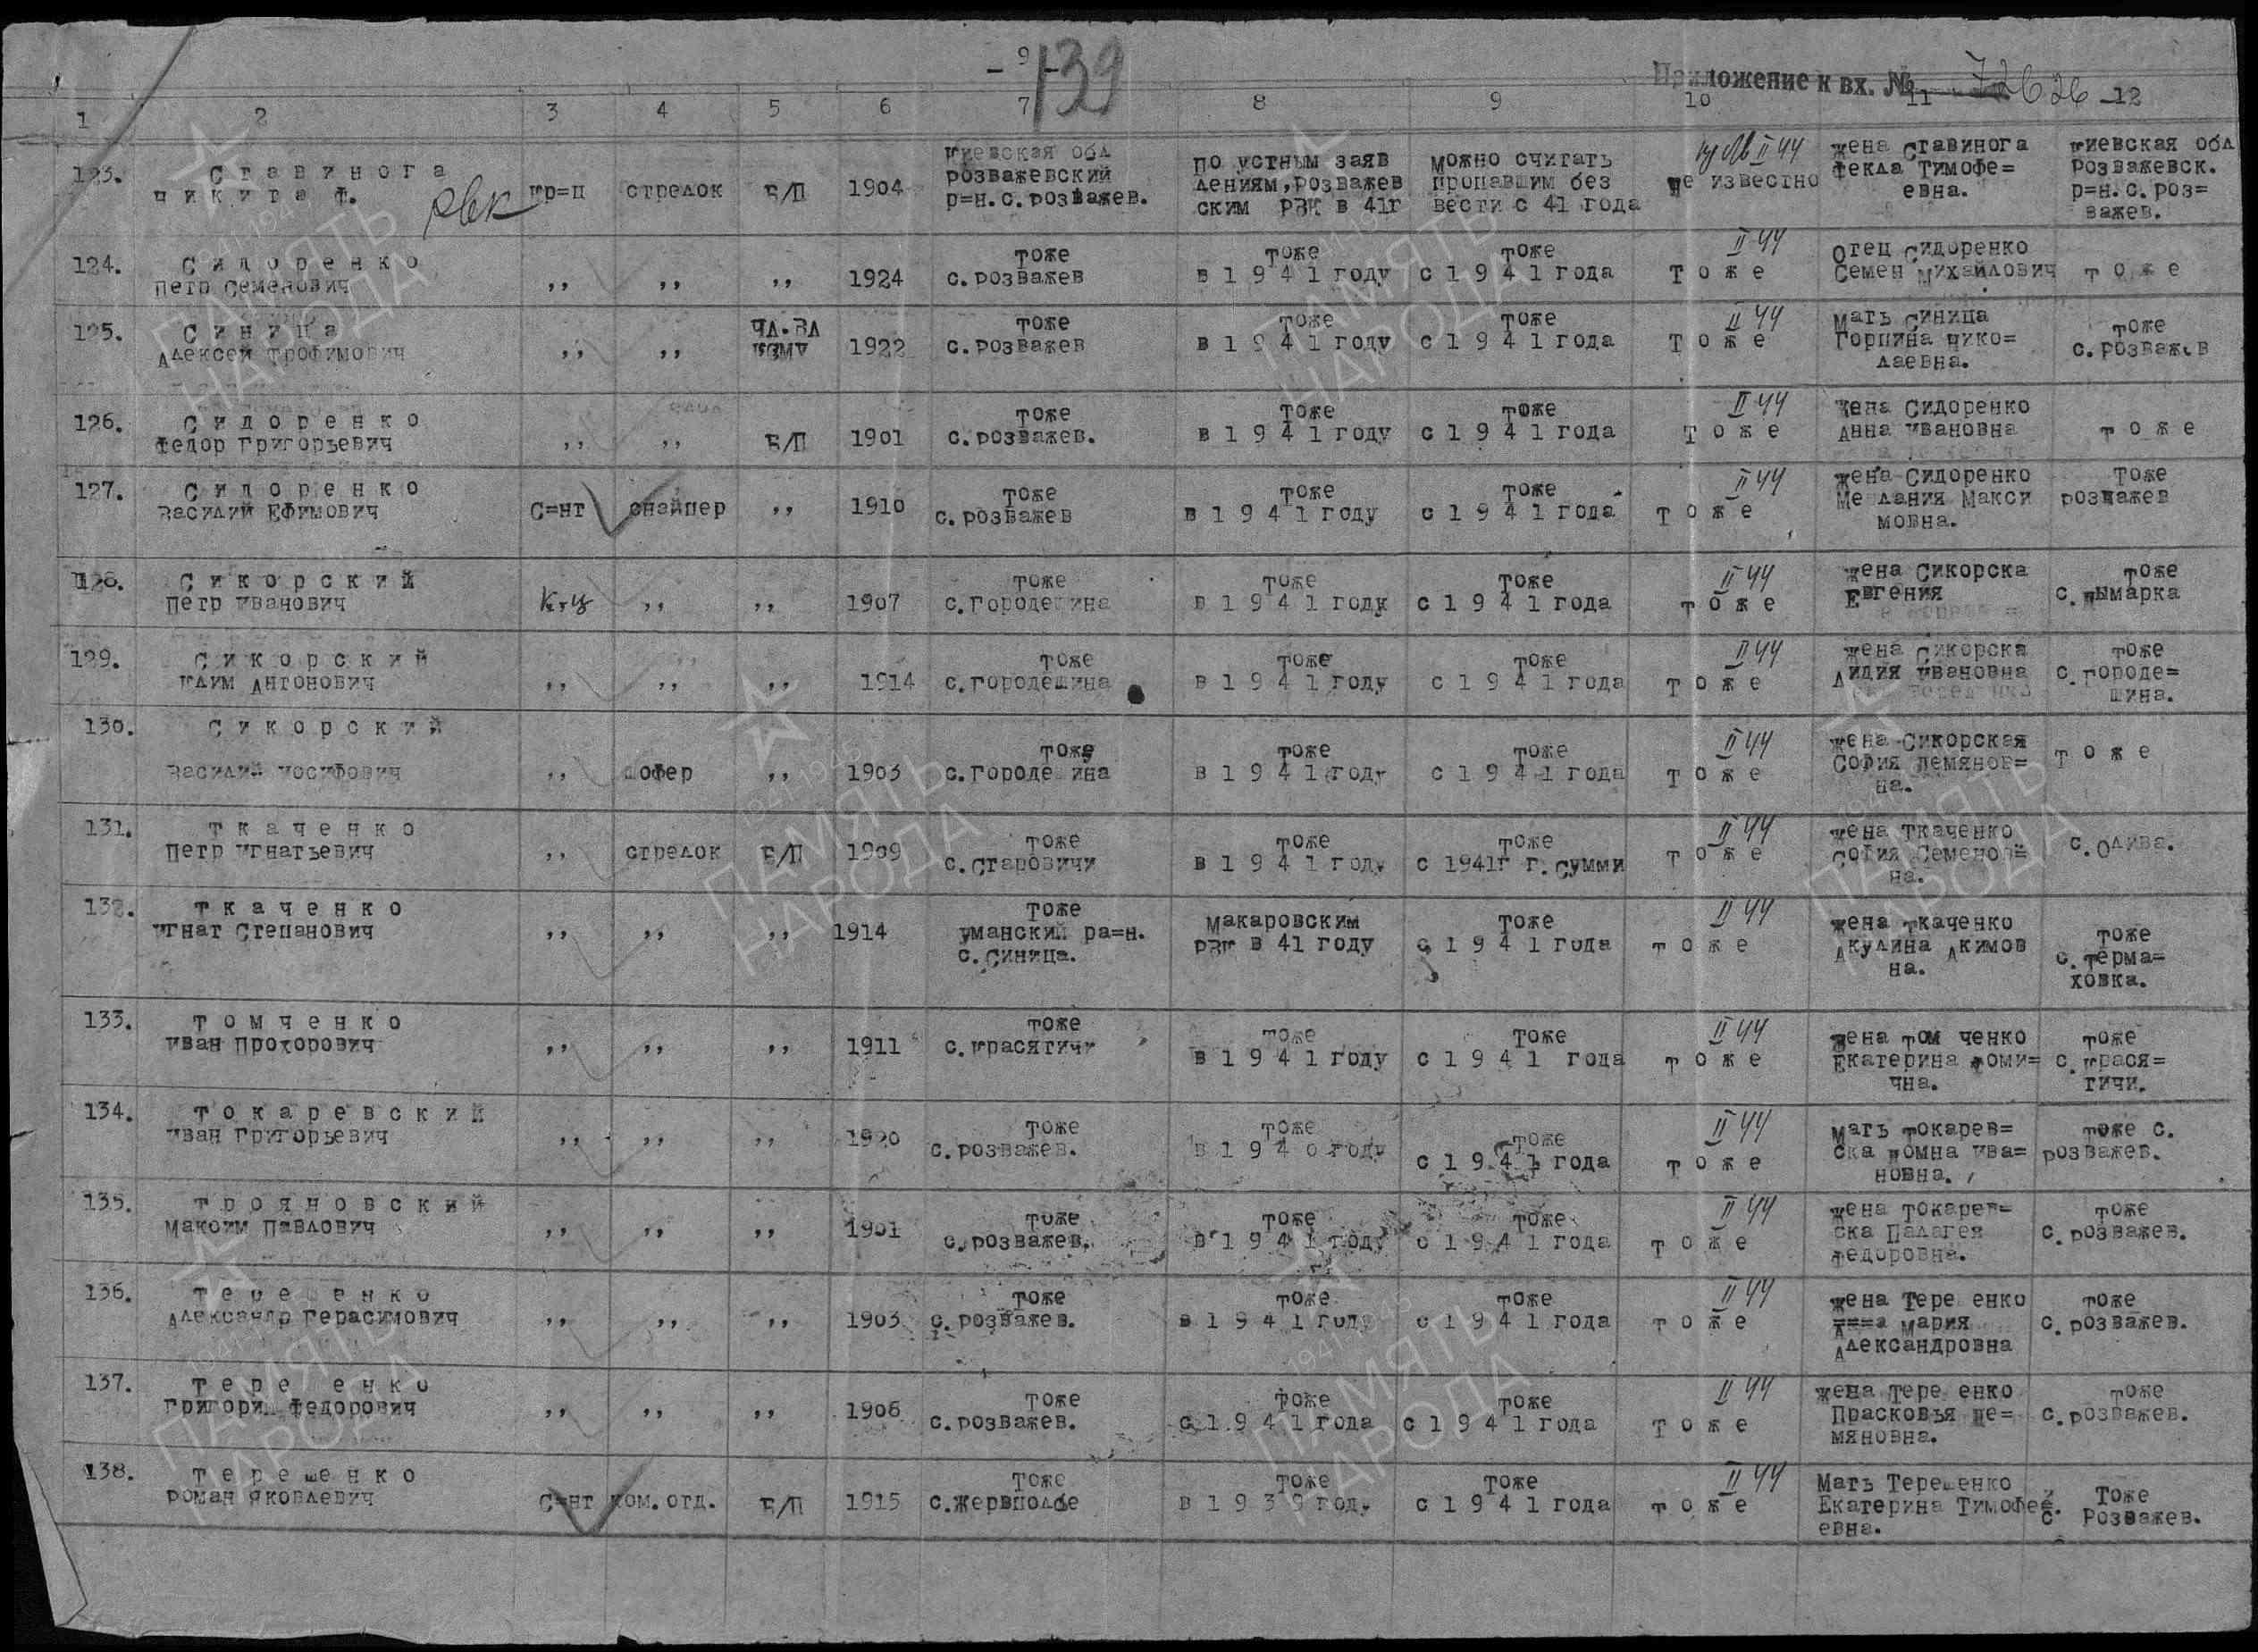 - 9 -
139
Приложение к вх. № 72626
1 2 3 4 5 6 7 8 9 10 11 12
123. Ставинога Никита Ф. РВК кр=ц стрелок Б/П 1904 Киевская обл Розважевский р=н. с. Розважев. По устным заяв лениям, Розважев ским РВК в 41г Можно считать пропавшим без вести с 41 года II 44 не известно Жена Ставинога Фекла Тимофе= евна. Киевская обл Розважевск. р=н. с. Роз= важев.
124. Сидоренко Петр Семенович ,, ,, ,, 1924 тоже с. Розважев тоже в 1941 году тоже с 1941 года II 44 тоже Отец Сидоренко Семен Михайлович тоже
125. Синица Алексей Трофимович ,, ,, ЧЛ. ВЛ КСМУ 1922 тоже с. Розважев тоже в 1941 году тоже с 1941 года II 44 тоже Мать Синица Горпина Нико= лаевна. тоже с. Розважев
126. Сидоренко Федор Григорьевич ,, ,, Б/П 1901 тоже с. Розважев. тоже в 1941 году тоже с 1941 года II 44 тоже Жена Сидоренко Анна Ивановна тоже
127. Сидоренко Василий Ефимович С=нт снайпер ,, 1910 тоже с. Розважев тоже в 1941 году тоже с 1941 года II 44 тоже Жена Сидоренко Мелания Макси мовна. тоже Розважев
128. Сикорский Петр Иванович К-ц ,, ,, 1907 тоже с. Городещина тоже в 1941 году тоже с 1941 года II 44 тоже Жена Сикорска Евгения тоже с. Дымарка
129. Сикорский Клим Антонович ,, ,, ,, 1914 тоже с. Городещина тоже в 1941 году тоже с 1941 года II 44 тоже Жена Сикорска Лидия Ивановна тоже с. Городе= щина.
130. Сикорский Василий Иосифович ,, шофер ,, 1903 тоже с. Городещина тоже в 1941 году тоже с 1941 года II 44 тоже Жена Сикорская София Демянов= на. тоже
131. Ткаченко Петр Игнатьевич ,, стрелок Б/П 1909 тоже с. Старовичи тоже в 1941 году тоже с 1941г г. Сумми II 44 тоже Жена Ткаченко София Семенов= на. с. Олива.
132. Ткаченко Игнат Степанович ,, ,, ,, 1914 тоже Уманский ра=н. с. Синица. Макаровским РВК в 41 году тоже с 1941 года II 44 тоже Жена Ткаченко Акулина Акимов на. тоже с. Терма= ховка.
133. Томченко Иван Прохорович ,, ,, ,, 1911 тоже с. Красятичи тоже в 1941 году тоже с 1941 года II 44 тоже Жена Том ченко Екатерина Фоми= чна. тоже с. Крася= тичи.
134. Токаревский Иван Григорьевич ,, ,, ,, 1920 тоже с. Розважев. тоже в 1940 году тоже с 1941 года II 44 тоже Мать Токарев= ска Домна Ива= новна. тоже с. Розважев.
135. Трояновский Максим Павлович ,, ,, ,, 1901 тоже с. Розважев. тоже в 1941 году тоже с 1941 года II 44 тоже Жена Токарев= ска Палагея Федоровна. тоже с. Розважев.
136. Терешенко Александр Герасимович ,, ,, ,, 1903 тоже с. Розважев. тоже в 1941 году тоже с 1941 года II 44 тоже Жена Тере енко Мария Александровна тоже с. Розважев.
137. Тере енко Григорий Федорович ,, ,, ,, 1906 тоже с. Розважев. тоже с 1941 года тоже с 1941 года II 44 тоже Жена Тере енко Прасковья Де= мяновна. тоже с. Розважев.
138. Терешенко Роман Яковлевич С=нт ком. отд. Б/П 1915 тоже с. Жервполье тоже в 1939 году тоже с 1941 года II 44 тоже Мать Терешенко Екатерина Тимофе евна. Тоже с. Розважев.